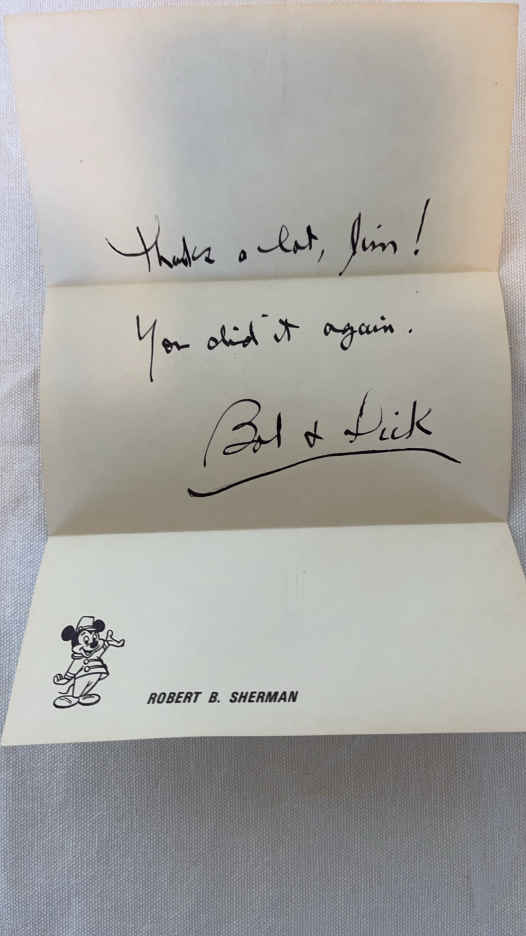 Thanks a lot, Jim!
You did it again.
Bob & Dick
ROBERT B. SHERMAN